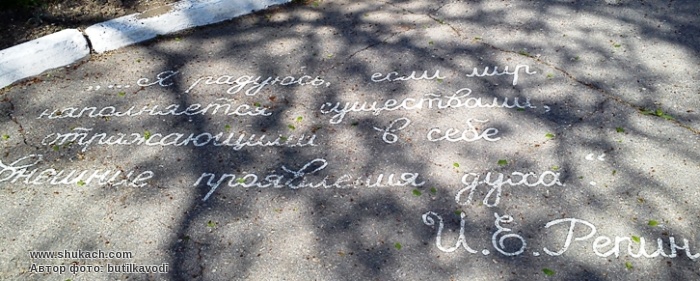 „....Я радуюсь, если мир
наполняется существами,
отражающими в себе
внешние проявления духа“.
И.Е.Репин
www.shukach.com
Автор фото: butilkavodi